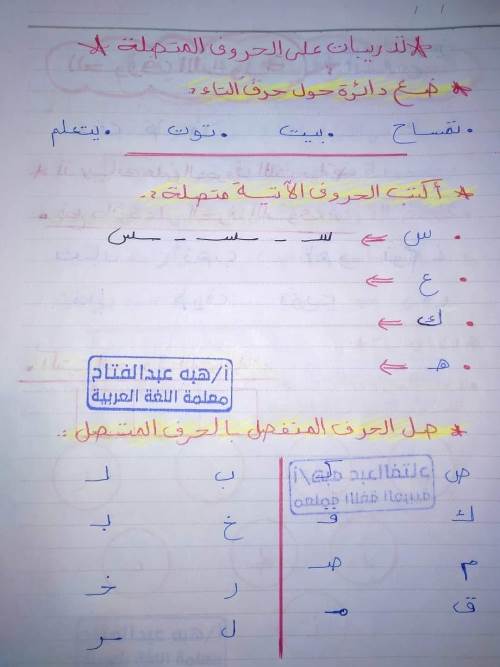 * تدريبات على الحروف المتصلة *
* ضع دائرة حول حرف التاء :
• تمساح • بيت • توت • يتعلم
* أكتب الحروف الآتية متصلة :-
• س ⇐ سـ - ـسـ - ـس
• ع ⇐
• ك ⇐
• هـ ⇐
أ/هبه عبدالفتاح
معلمة اللغة العربية
* صل الحرف المنفصل بالحرف المتصل :-
ص كـ ب لـ
ك قـ خ بـ
م صـ ر خـ
ق مـ ل ـر